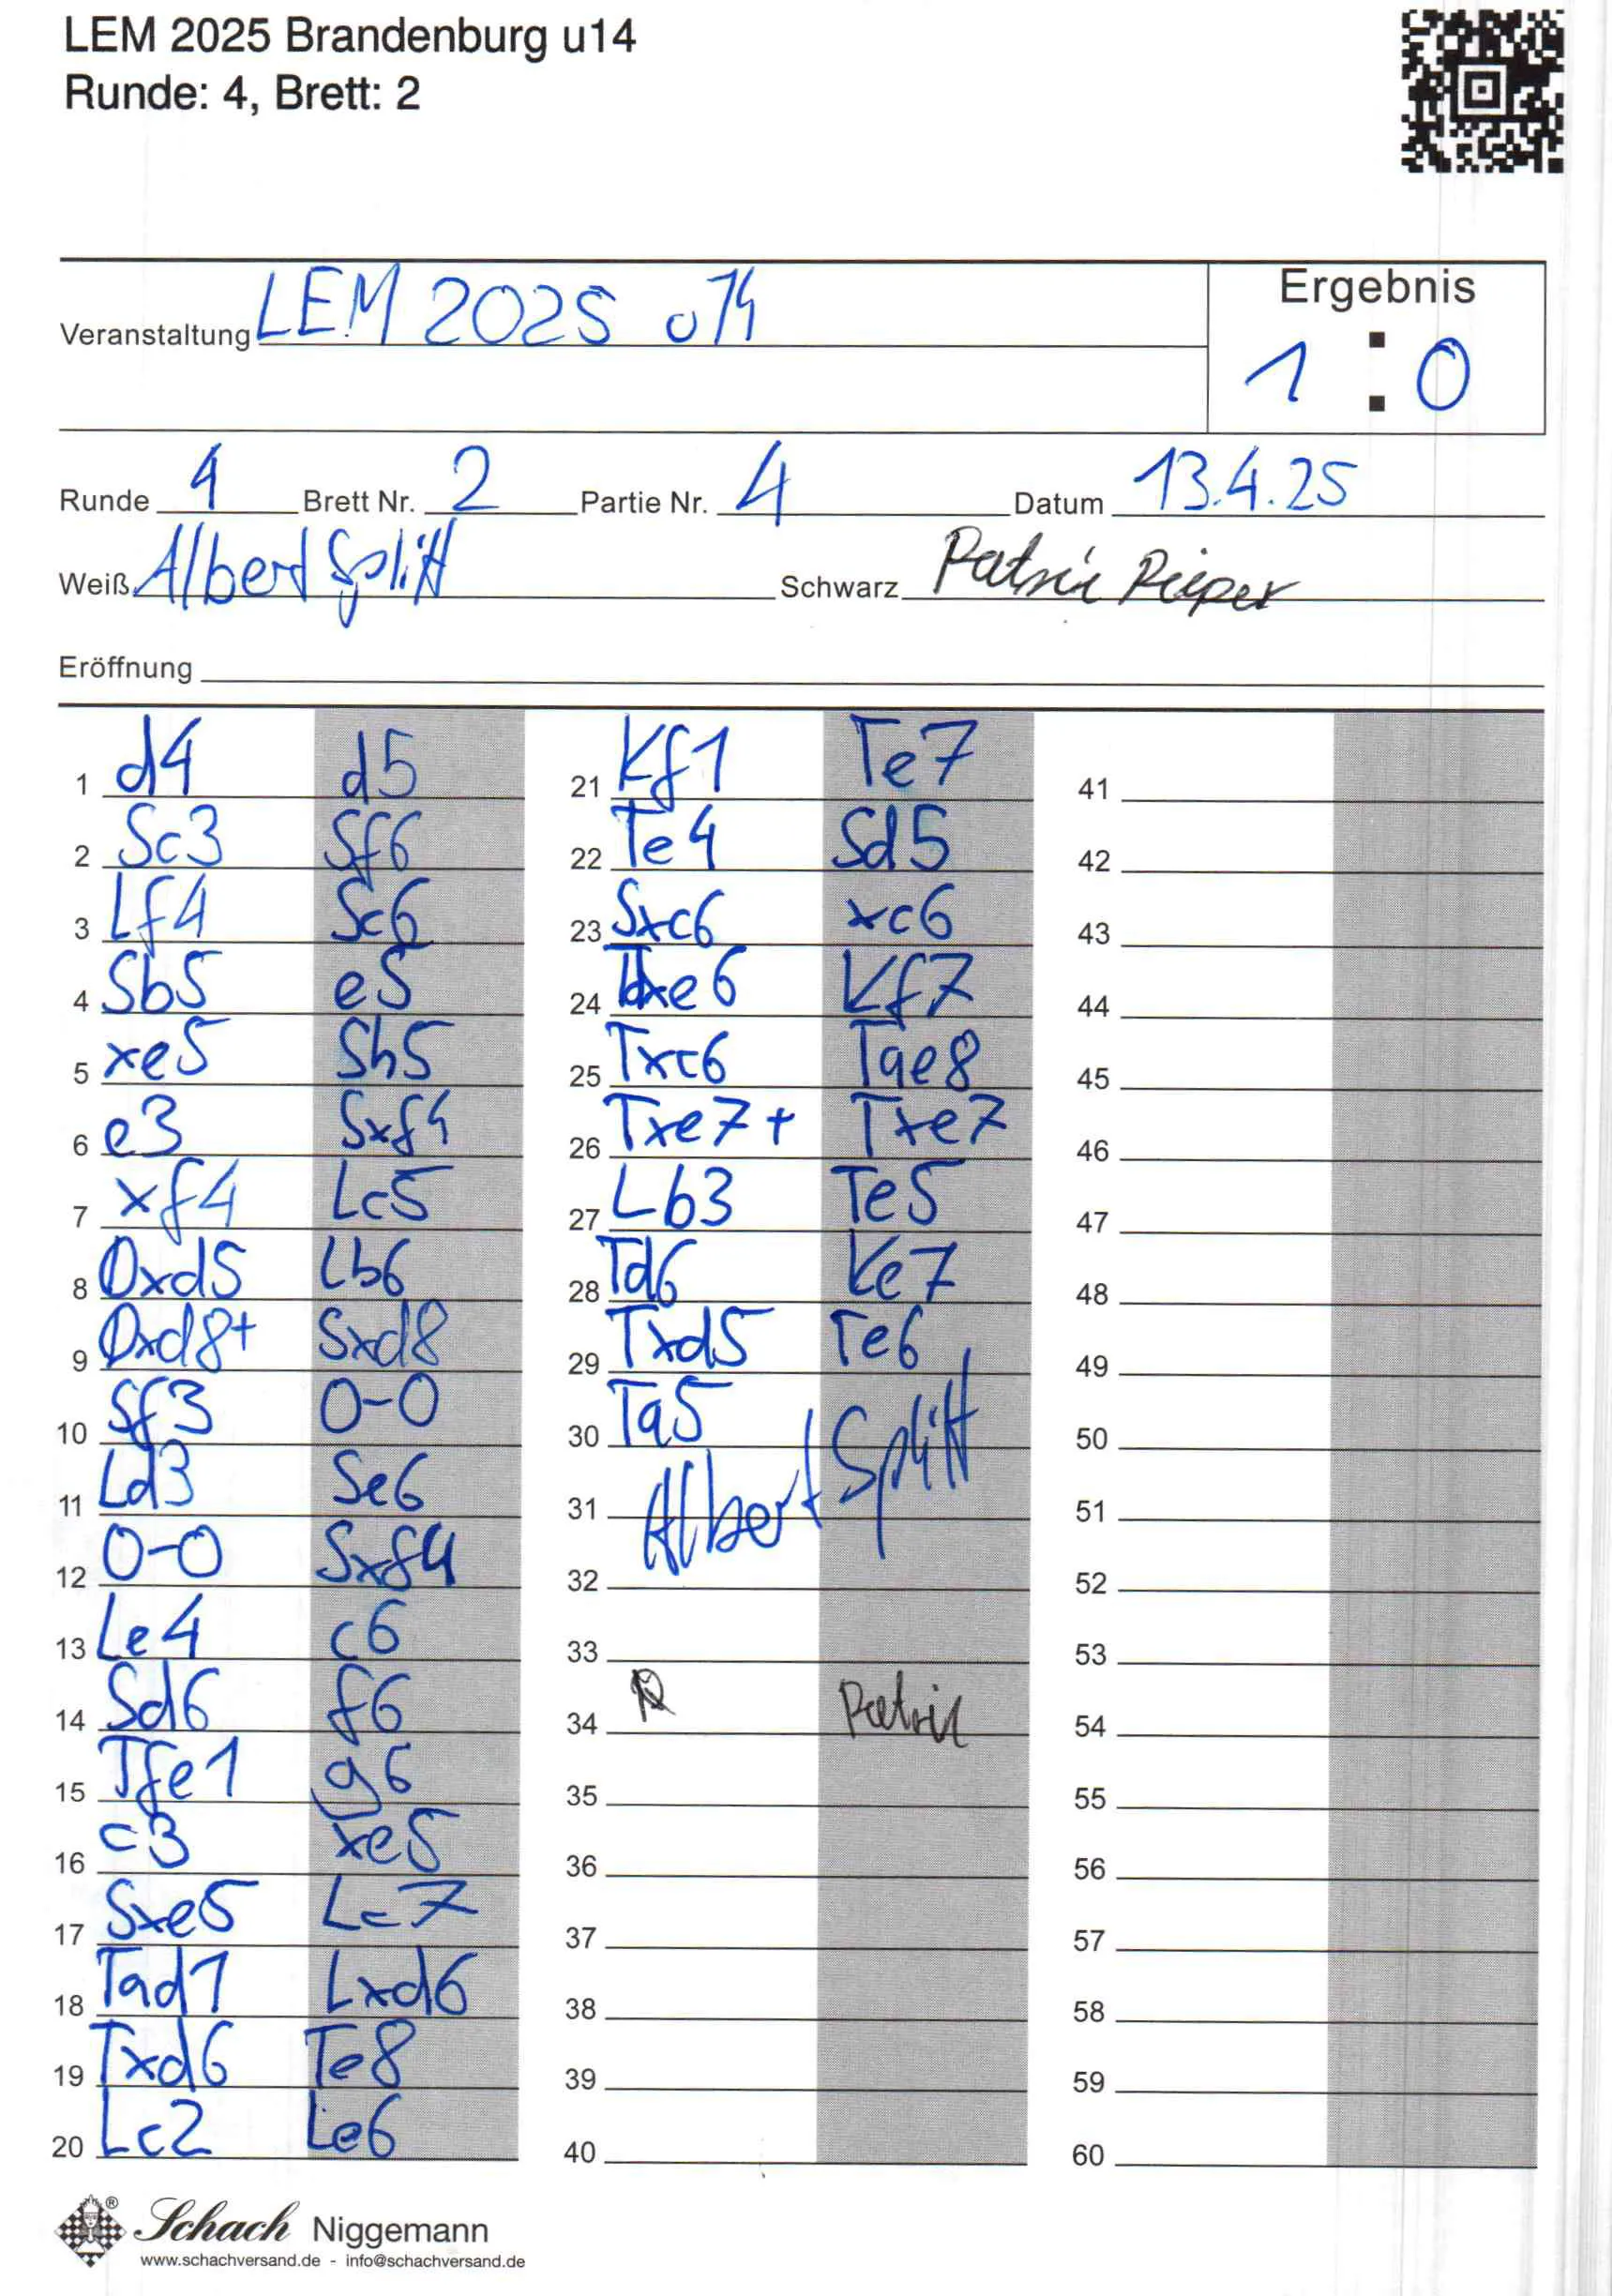 LEM 2025 Brandenburg u14
Runde: 4, Brett: 2
Veranstaltung LEM 2025 u14
Ergebnis
1 : 0
Runde 4 Brett Nr. 2 Partie Nr. 4 Datum 13.4.25
Weiß Albert Splitt Schwarz Patric Pieper
Eröffnung
1 d4 d5
2 Sc3 Sf6
3 Lf4 Sc6
4 Sb5 e5
5 xe5 Sh5
6 e3 Sxf4
7 xf4 Lc5
8 Dxd5 Lb6
9 Dxd8+ Sxd8
10 Sf3 0-0
11 Ld3 Se6
12 0-0 Sxf4
13 Le4 c6
14 Sd6 f6
15 Tfe1 g6
16 c3 xe5
17 Sxe5 Lc7
18 Tad1 Lxd6
19 Txd6 Te8
20 Lc2 Le6
21 Kf1 Te7
22 Te4 Sd5
23 Sxc6 xc6
24 Txe6 Kf7
25 Txc6 Tae8
26 Txe7+ Txe7
27 Lb3 Te5
28 Td6 Ke7
29 Txd5 Te6
30 Ta5
31 Albert Splitt
32
33
34 Patric
35
36
37
38
39
40
41
42
43
44
45
46
47
48
49
50
51
52
53
54
55
56
57
58
59
60
® Schach Niggemann
www.schachversand.de - info@schachversand.de